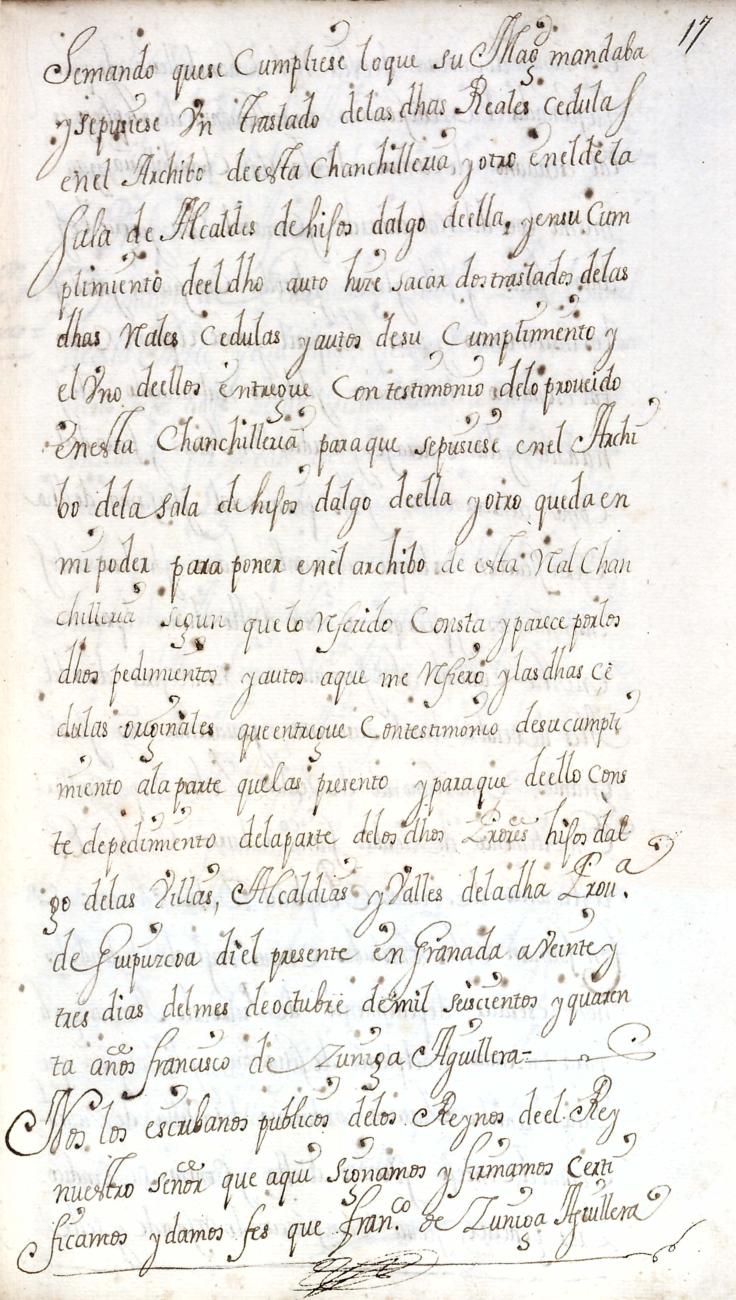 17
Semando quese Cumpliese loque su Magd mandaba
y sepusiese Vn traslado delas dhas Reales cedulas
enel Archibo de esta Chanchilleria y otro enel de la
Sala de Alcaldes de hijos dalgo deella, y ensu Cum
plimiento de el dho auto hice sacar dos traslados delas
dhas Rales Cedulas y autos desu Cumplimiento y
el Vno deellos entregue Con testimonio delo proueido
en esta Chanchilleria paraque sepusiese enel Archi
bo dela Sala de hijos dalgo deella y otro queda en
mi poder para poner enel archibo de esta Ral Chan
chilleria segun que lo Referido Consta y parece por los
dhos pedimientos y autos aque me Refiero y las dhas Ce
dulas originales que entregue Contestimonio desu cumpli
miento ala parte quelas presento y paraque deello Cons
te de pedimiento delaparte delos dhos Prores hijos dal
go delas Villas, Alcaldias y Valles dela dha Proua.
de Guipuzcoa di el presente en Granada a Veinte y
tres dias del mes de octubre de mil seiscientos y quaren
ta años francisco de Zuniga Aguillera
Nos los escribanos publicos delos Reynos de el Rey
nuestro señor que aqui Signamos y firmamos Certi
ficamos y damos fee que franco. de Zuniga Aguillera